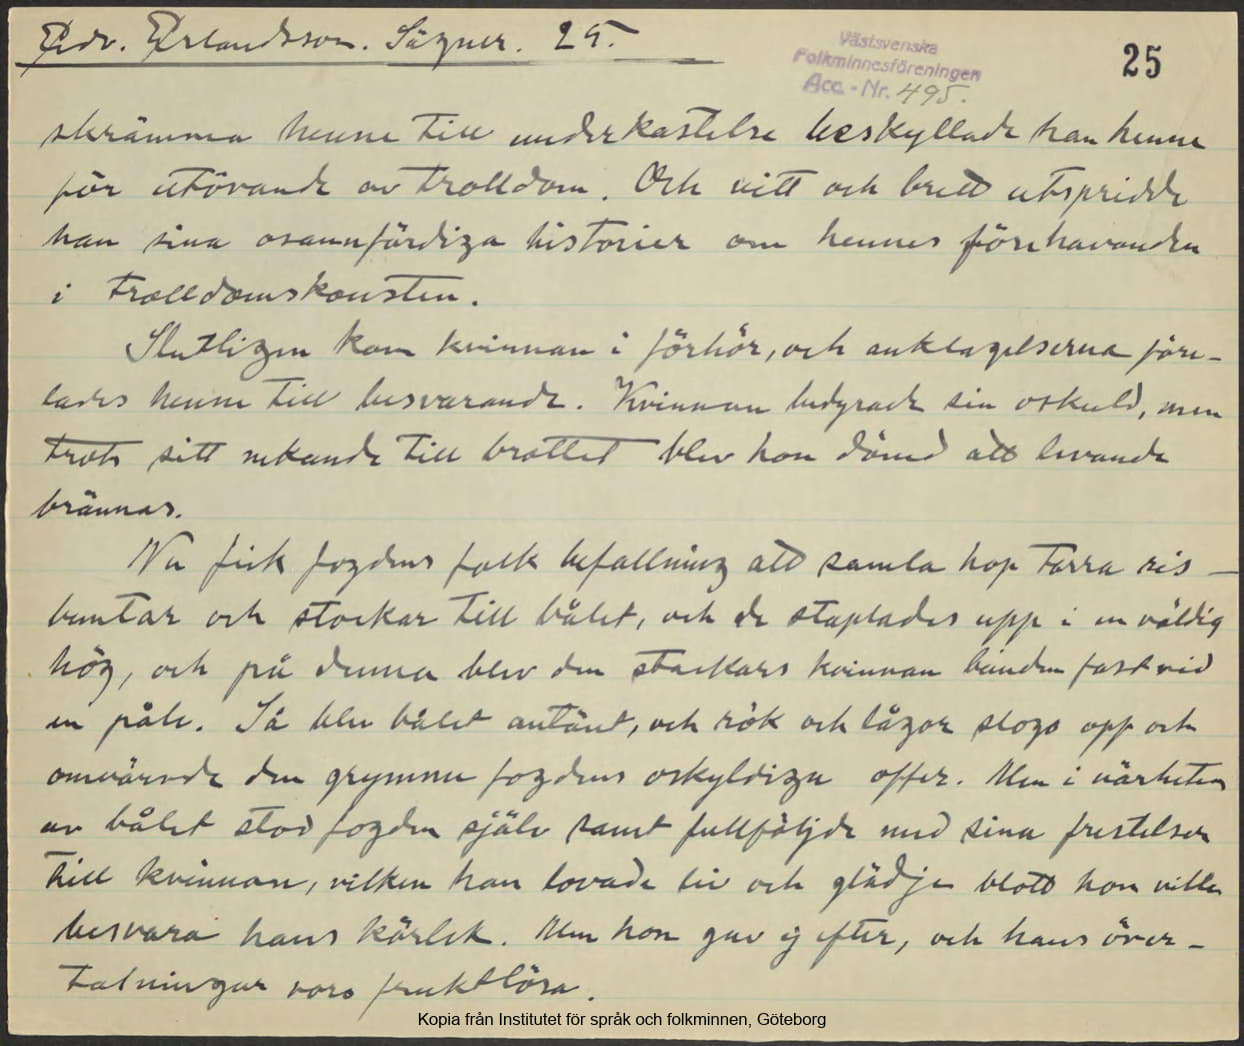 Edv. Erlandsson. Sägner. 25.
Västsvenska
Folkminnesföreningen
Acc. - Nr. 495.
25
skrämma henne till underkastelse beskyllade han henne
för utövande av trolldom. Och vitt och brett utspridde
han sina osannfärdiga historier om hennes förehavanden
i trolldomskonsten.
Slutligen kom kvinnan i förhör, och anklagelserna före-
lades henne till besvarande. Kvinnan bedyrade sin oskuld, men
trots sitt nekande till brottet blev hon dömd att levande
brännas.
Nu fick fogdens folk befallning att samla hop torra ris-
buntar och stockar till bålet, och de staplades upp i en väldig
hög, och på denna blev den stackars kvinnan bunden fast vid
en påle. Så blev bålet antänt, och rök och lågor slogo opp och
omvärvde den grymme fogdens oskyldiga offer. Men i närheten
av bålet stod fogden själv samt fullföljde med sina frestelser
till kvinnan, vilken han lovade liv och glädje blott hon ville
besvara hans kärlek. Men hon gav ej efter, och hans över-
talningar voro fruktlösa.
Kopia från Institutet för språk och folkminnen, Göteborg